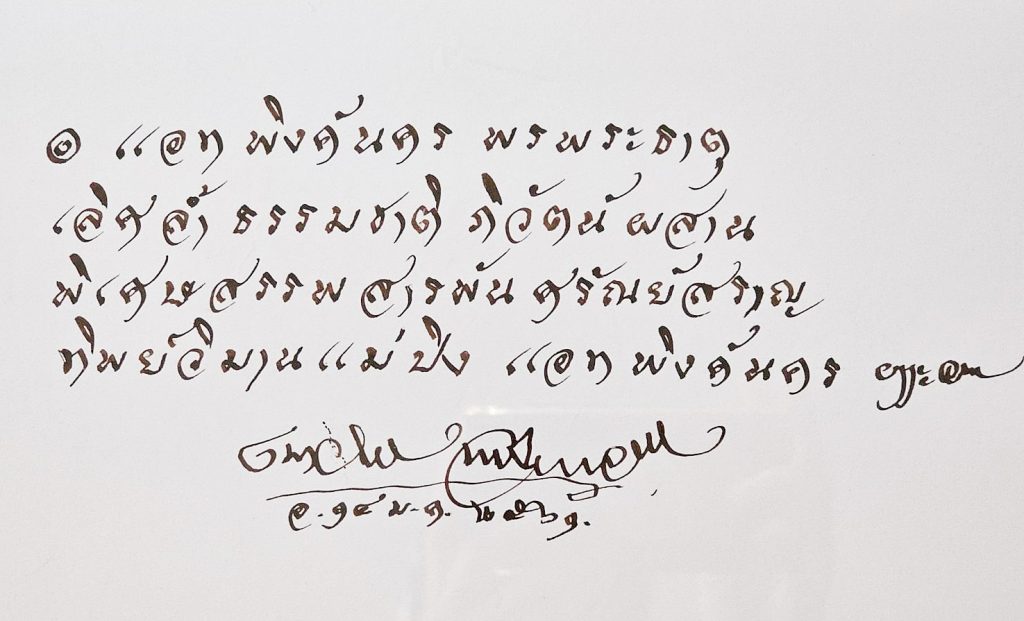 ๏ แอท พิงค์นคร พรพระธาตุ
เลิศล้ำ ธรรมชาติ ภิวัตน์ ผสาน
พิเศษสรรพ สารพัน ศรัณย์สราญ
ทิพย์วิมาน แม่ปิง แอท พิงค์นคร
อ. ๑๔ ม.ค. ๒๕๖๑.